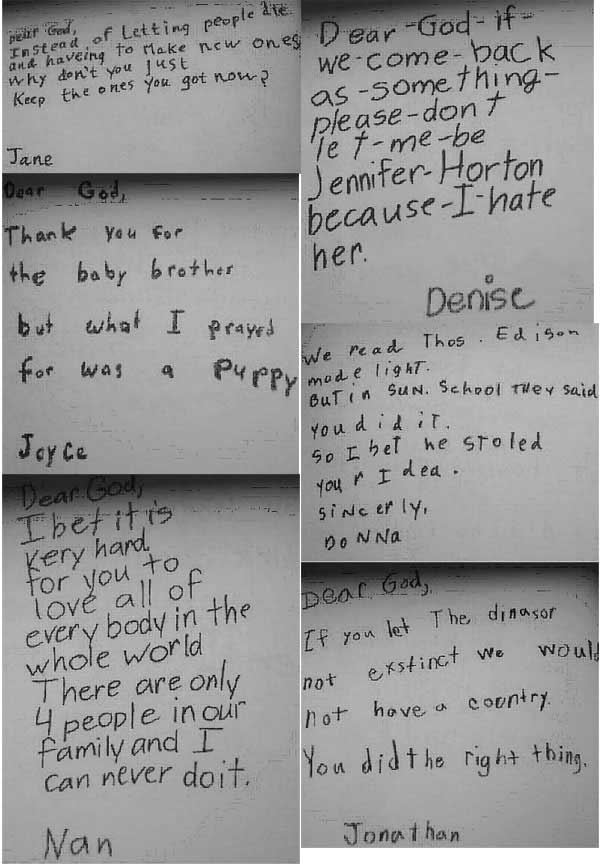 Dear God,
Instead of Letting people die
and haveing to Make new ones
why don't you Just
Keep the ones you got now?
Jane
Dear God,
Thank you for
the baby brother
but what I prayed
for was a puppy
Joyce
Dear God,
I bet it is
very hard
for you to
love all of
every body in the
whole world
There are only
4 people in our
family and I
can never do it.
Nan
Dear-God-if-
we-come-back
as-something-
please-dont
let-me-be
Jennifer-Horton
because-I-hate
her.
Denise
We read Thos. Edison
made light.
But in Sun. School They said
you did it.
So I bet he stoled
your Idea.
Sincerly,
Donna
Dear God,
If you let The dinasor
not exstinct we would
not have a country.
You did the right thing.
Jonathan